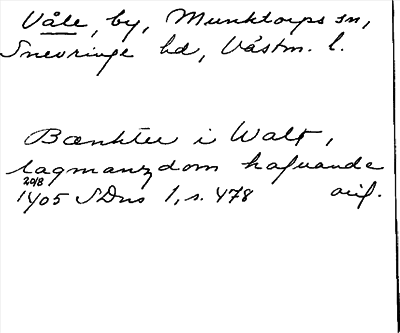 Våle, by, Munktorps sn,
Snevringe hd, Västm. l.
Bænkter i Walt,
lagmanzdom hafuande
20/8
1405 SDns 1, s. 478 orig.